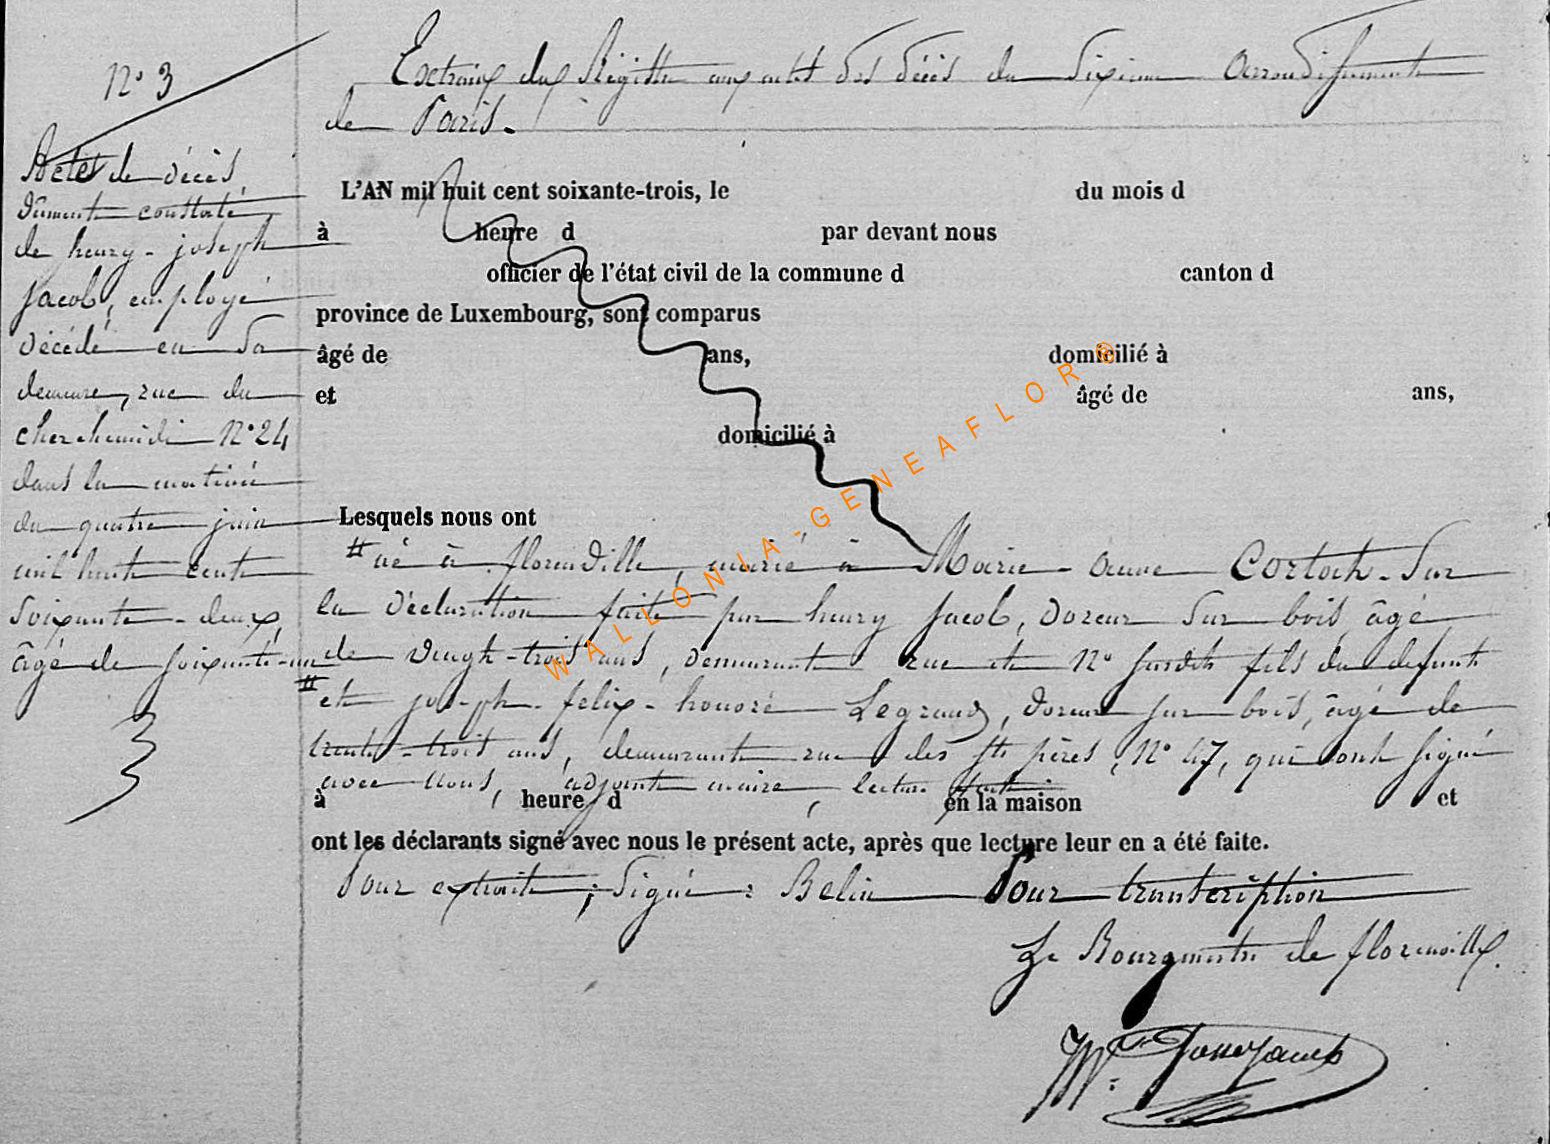 N° 3
Acte de décès
dûment constaté
de henry - joseph
Jacob, employé
décédé en Sa
demeure, rue du
cherchemidi N° 24
dans la matinée
du quatre juin
mil huit cent
Soixante - deux,
âgé de soixante-un
#
Extrait du Régistre aux actes des décès du Sixième arrondissement
de Paris.
L'AN mil huit cent soixante-trois, le du mois d
à heure d par devant nous
officier de l'état civil de la commune d canton d
province de Luxembourg, sont comparus
âgé de ans, domicilié à
et âgé de ans,
domicilié à
Lesquels nous ont
# né à florenville, marié à Marie - anne Sur
la déclaration faite par henry Jacob, doreur Sur bois, âgé
de vingt-trois ans, demeurant rue et N° susdits fils du defunt
et joseph - felix - honoré Legrand, doreur sur bois, âgé de
trente-trois ans, demeurant rue des Sts pères, N° 47, qui ont signé
avec nous, adjoint maire, lecture faite
à heure d en la maison et
ont les déclarants signé avec nous le présent acte, après que lecture leur en a été faite.
Pour extrait ; Signé : Belin Pour transcription
Le Bourgmestre de florenville.
WALLONIA-GENEAFLOR®